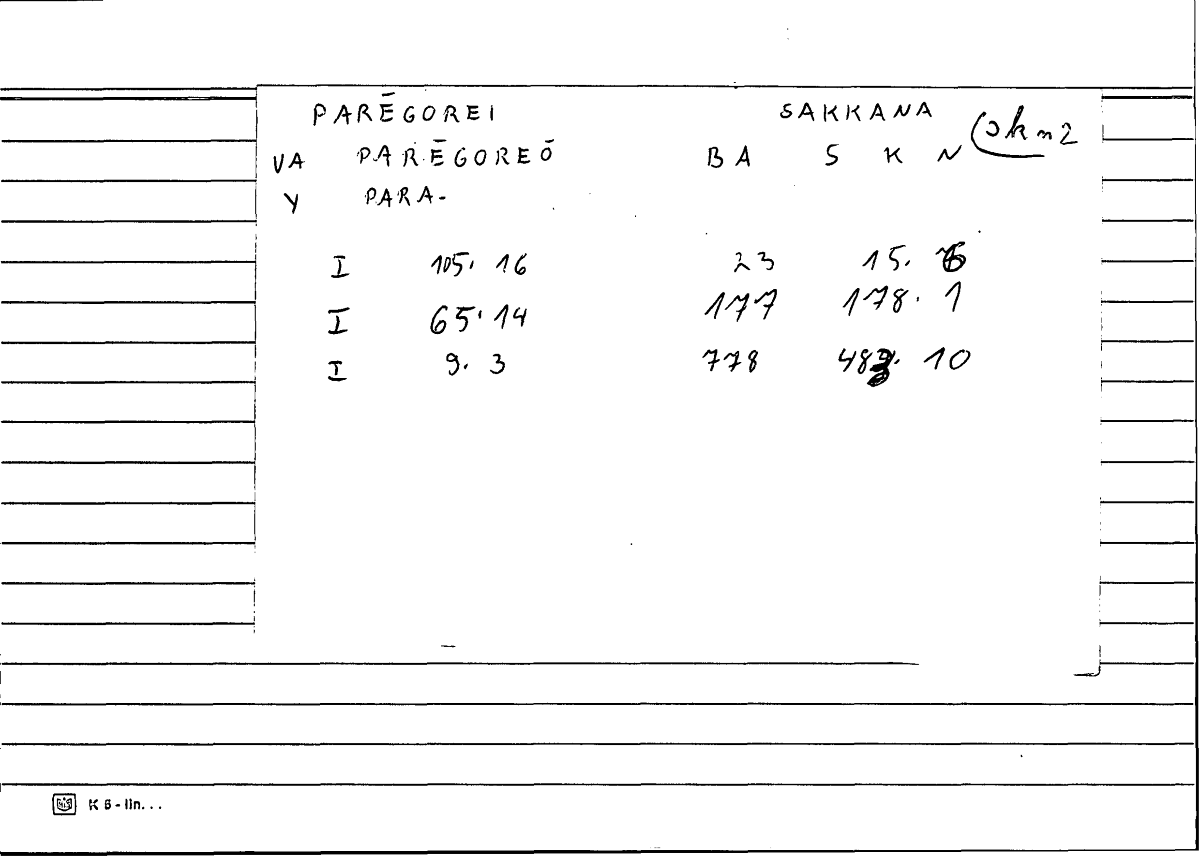 PARĒGOREI SAKKANA
VA PARĒGOREŌ BA S K N
Y PARA-
I 105. 16 23 15. 6
I 65. 14 177 178. 1
I 9. 3 778 10
K 6 - lin...